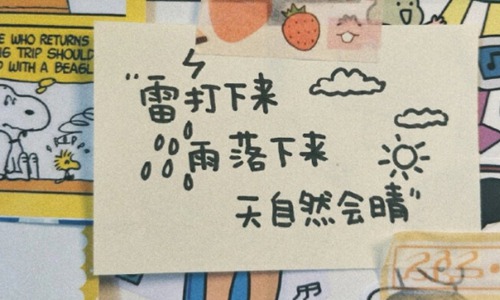 WHO RETURNS
TRIP SHOULD
WITH A BEAGL
"雷打下来
雨落下来
天自然会晴"